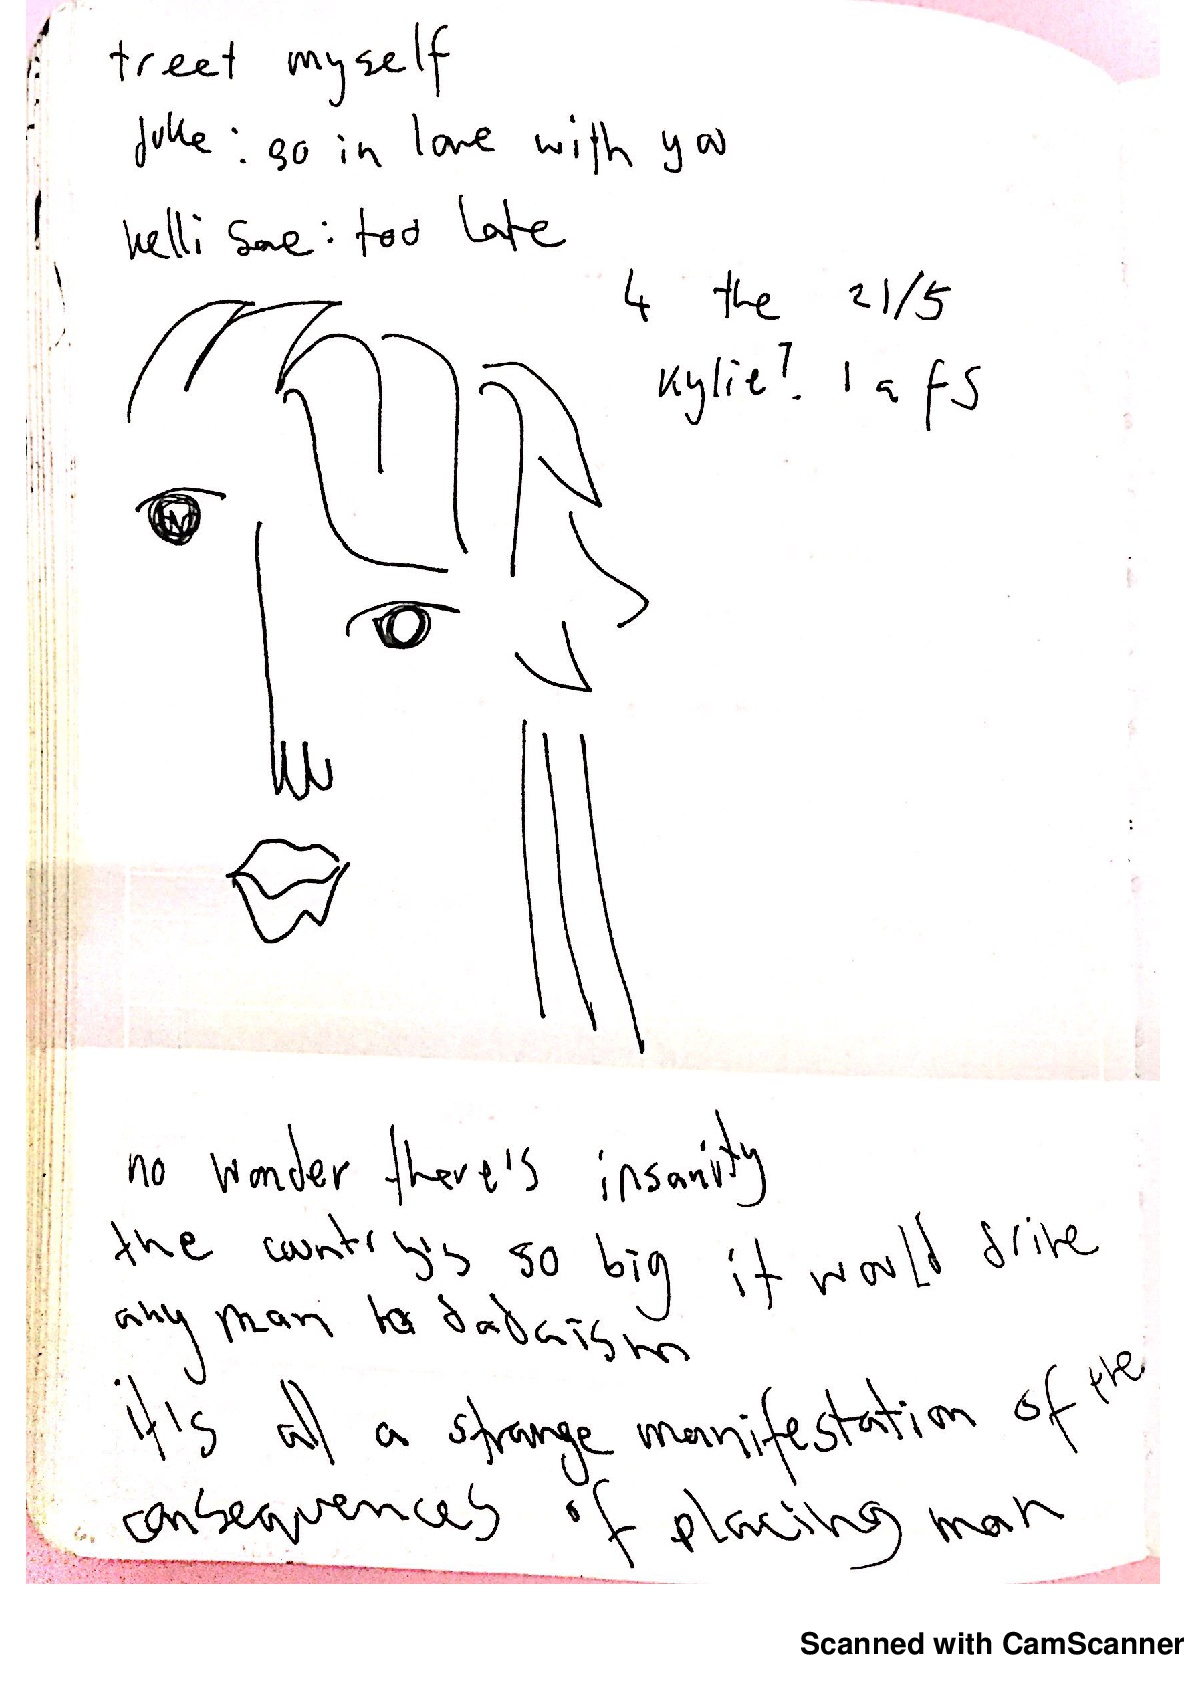 treet myself
duke: so in love with you
kelli Sae: too late
4 the 21/5
Kylie? 1 a f5
no wonder there's insanity
the country's so big it would drive
any man to dadaism
it's all a strange manifestation of the
consequences of placing man
Scanned with CamScanner